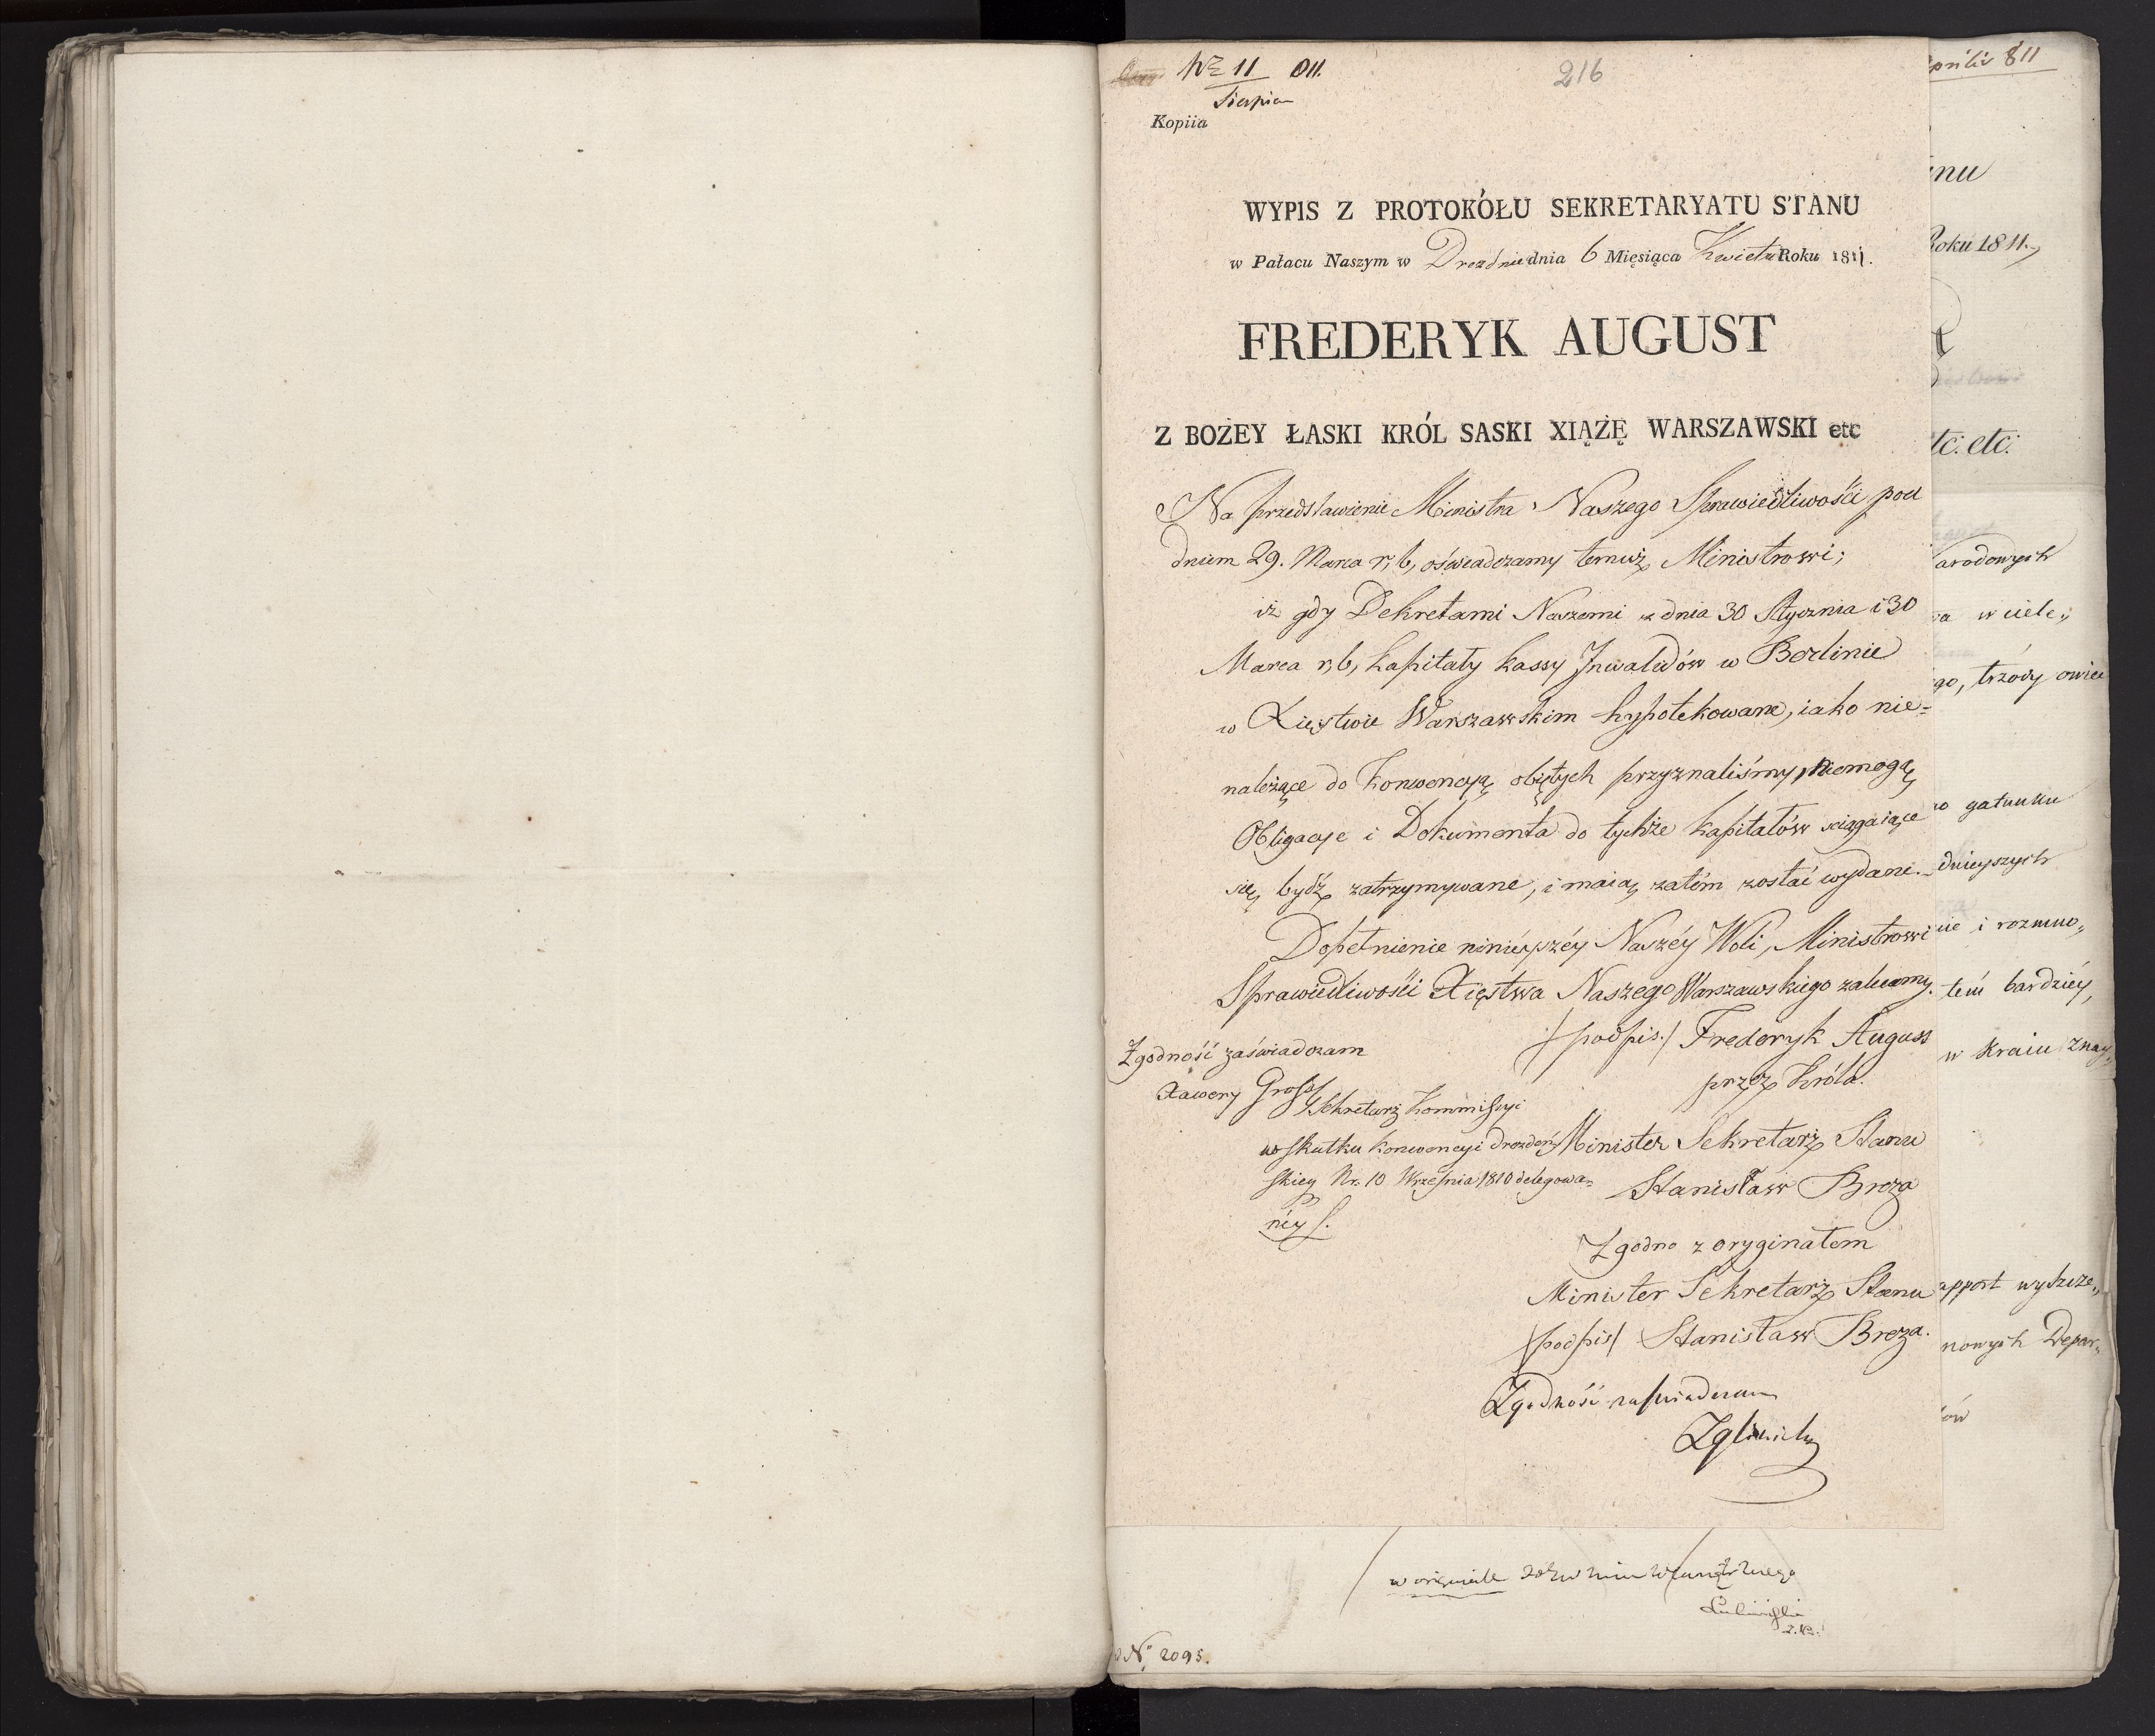 Nr 11 811.
Sierpień
216
Kopiia
WYPIS Z PROTOKÓŁU SEKRETARYATU STANU
w Pałacu Naszym w Dreznie dnia 6 Miesiąca Kwietn Roku 1811.
FREDERYK AUGUST
Z BOŻEY ŁASKI KRÓL SASKI XIĄŻĘ WARSZAWSKI etc
Na przedstawienie Ministra Naszego Sprawiedliwości pod
dniem 29. Marca r, b, oświadczamy temuż Ministrowi;
iż gdy Dekretami Naszemi z dnia 30 Stycznia i 30
Marca r, b, kapitały kassy Inwalidów w Berlinie
w Xięstwie Warszawskim hypotekowane, iako nie=
należące do Konwencyą obiętych przyznaliśmy, niemogą
Obligacye i Dokumenta do tychże kapitałów sciągaiące
się, bydź zatrzymywane, i maią zatém zostać wydane.
Dopełnienie ninieyszéy Naszéy Woli, Ministrowi
Sprawiedliwości Xięstwa Naszego Warszawskiego zalecamy.
/podpis./ Frederyk August
przez Króla.
Minister Sekretarz Stanu
Stanisław Breza
Zgodność zaświadczam
Xawery Gross
Sekretarz Kommissyi
w skutku Konwencyi Drezdeń
skiey Nr. 10 Września 1810 delegowa=
néy
Zgodno z oryginałem
Minister Sekretarz Stanu
/podpis/ Stanisław Breza.
Zgodność zaświadczam
w oryginale
No 2095.
prilis 811
anu
Roku 1811.
etc. etc.
arodowych
wa w ciele,,
go, trzody owiec
o gatunku
dnieyszych
ie i rozmno,,
tém bardziéy,
w Kraiu znay,,
apport wyszcze,,
nowych Depar,,
ów